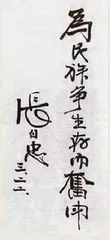 為民族争生存而奮鬥
張自忠
三.三三.